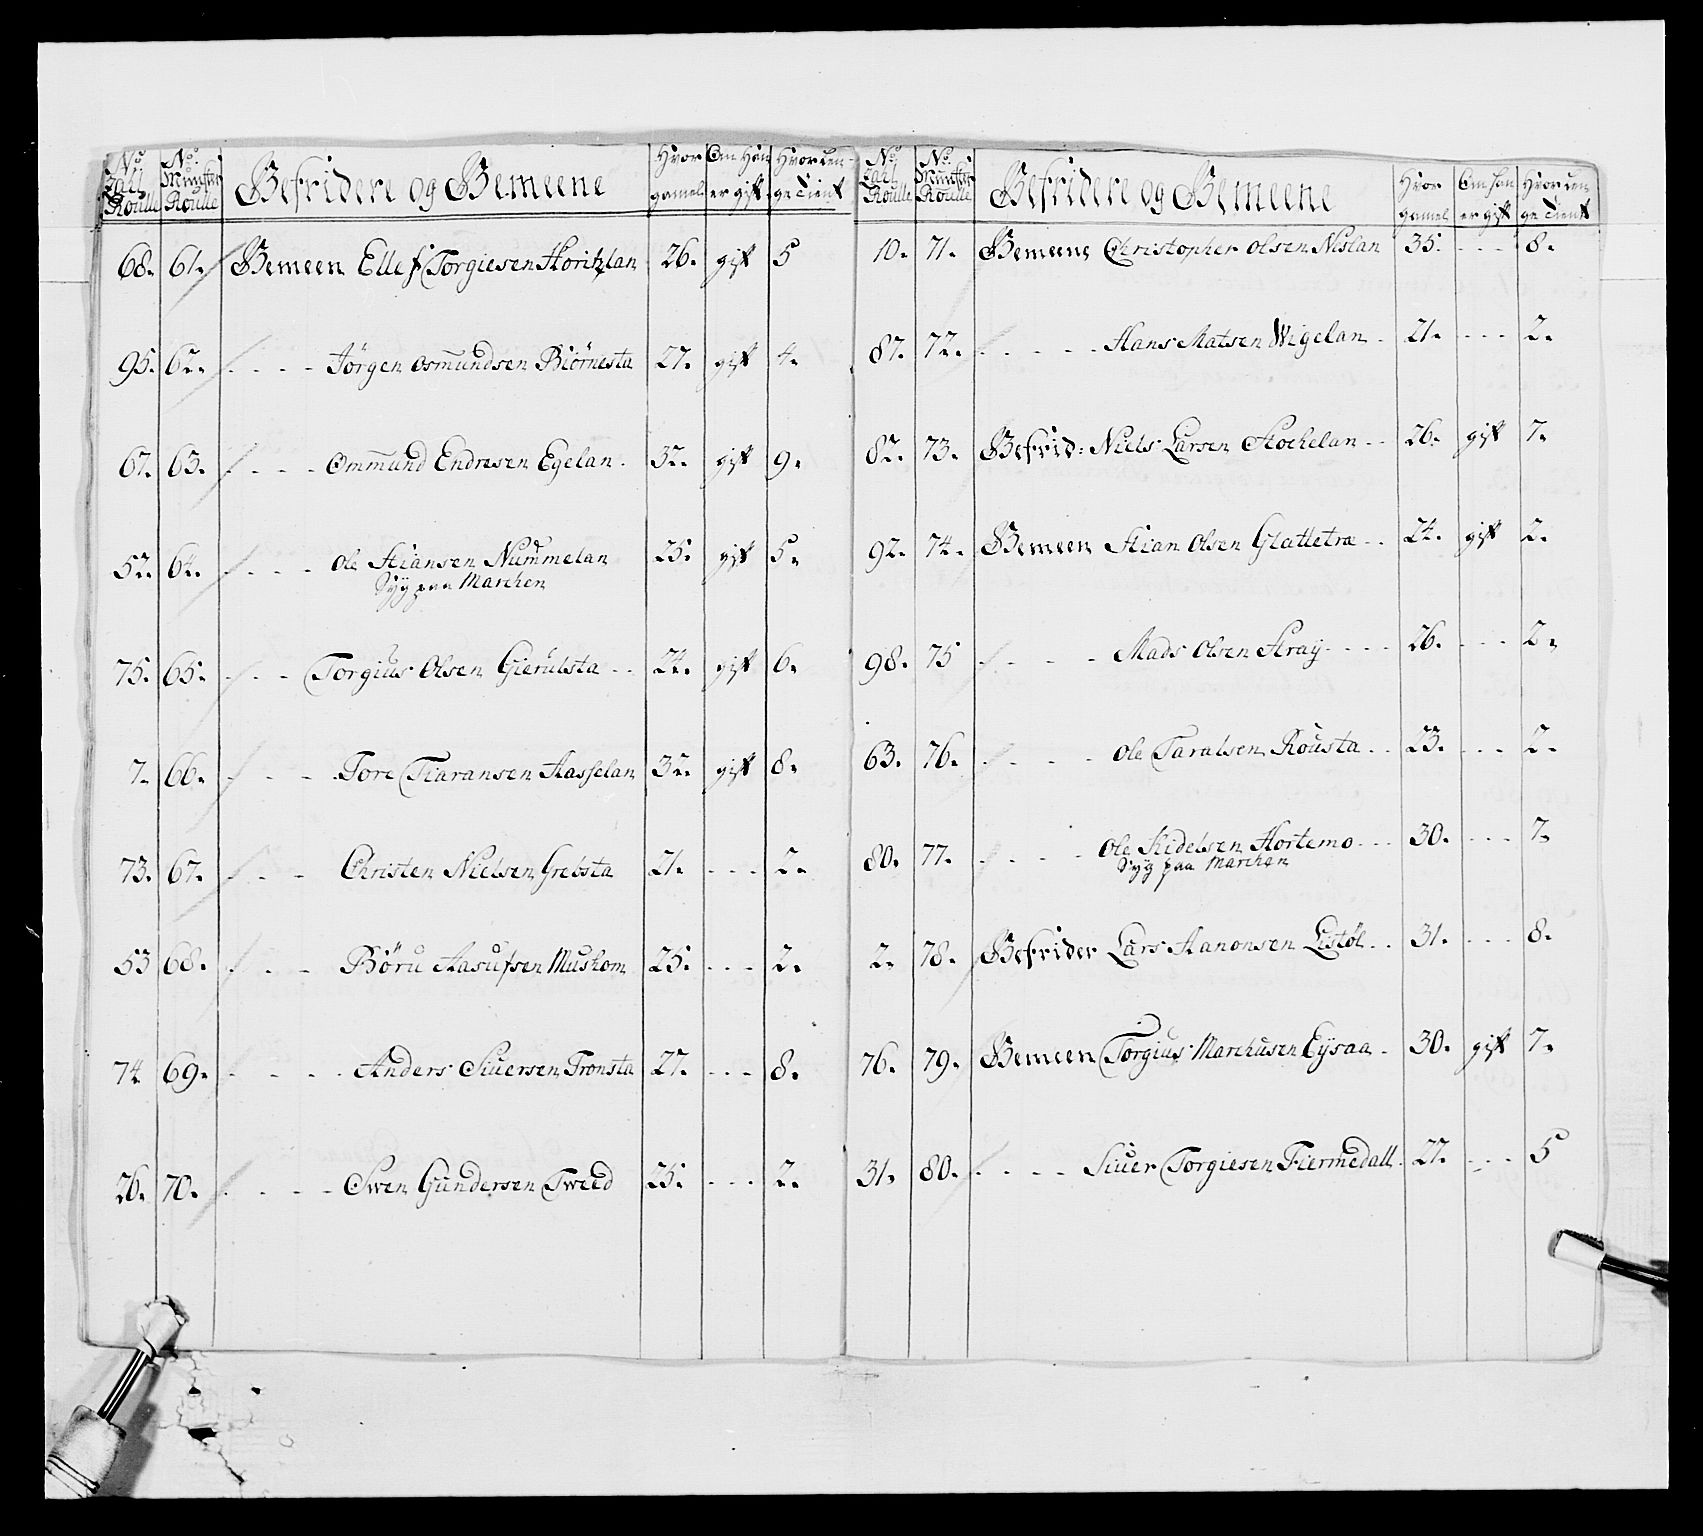 No Tall Roulle | No. Munster Roulle | Befridere og Bemeene | Hvor gamel | Om Han er gift | Hvor Len-ge Tient
68. 61. Bemeen Ellef Torgiesen Horitzlan 26. gift 5
95. 62. - - - - Jörgen Osmundsen Biörnesta 27. gift 4.
67. 63. - - - - Ommund Endresen Egelan. 32. gift 9.
52. 64. - - - - Ole Stiansen Nummelan 25. gift 5.
Syg paa Marchen
75. 65. - - - Torgius Olsen Gierulsta - - 24. gift 6.
7. 66. - - - - Tore Tiaransen Aasselan 32. gift 8.
73. 67. - - - Christen Nielsen Grebsta 21. - - - 2.
53 68. - - - Böru Aasufsen Muskom 25. - - - 2.
74 69. - - - - Anders Siuersen Tronsta 27. - - - 8.
26. 70. - - - - Swen Gundersen Tweed 25. - - - 2.
No. Tall Roulle | No. Munster Roulle | Befridere og Bemeene | Hvor gamel | Om han er gift | Hvor Len-ge Tient
10. 71. Bemeene Christopher Olsen Nislan 35. - - - 8.
87. 72. - - - - - Hans Matsen Wigelan. 21. - - - 2.
82. 73. Befrid: Niels Larsen Stochelan - - 26. gift 7.
92. 74. Bemeen Stian Olsen Glattetræ - - 24. gift 2.
98. 75 - - - - Mads Olsen Straÿ - - - - 26. - - - 2.
63. 76. - - - - Ole Taralsen Röusta - - 23. - - - 2.
80. 77. - - - - Ole Kidelsen Hortemo - - - 30. - - - 7.
Syg paa Marchen
2. 78. Befrider Lars Aanonsen Listöl - - 31. - - - 8.
76. 79. Bemeen Torgius Marchusen Eÿsaa - 30. gift 7.
31. 80. - - - - Siuer Torgiesen Fiermedall. 27. - - - 5